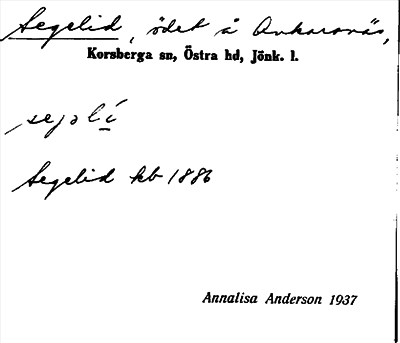 Segelid, ödet å Ankaranäs,
Korsberga sn, Östra hd, Jönk. l.
sejəlí
Segelid kb 1886
Annalisa Anderson 1937